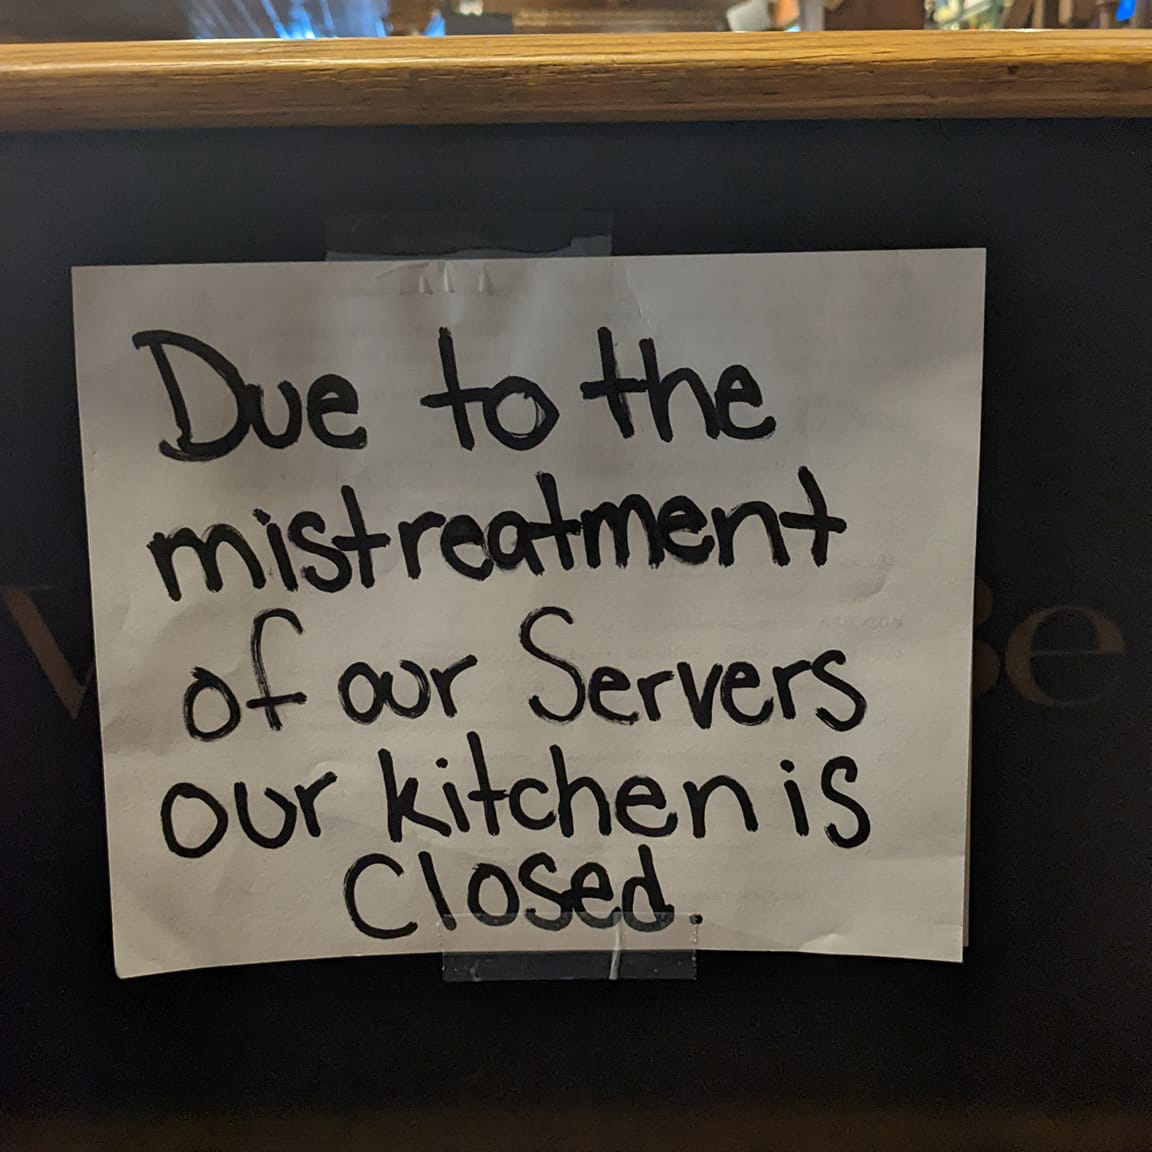 Due to the
mistreatment
of our Servers
our kitchen is
Closed.